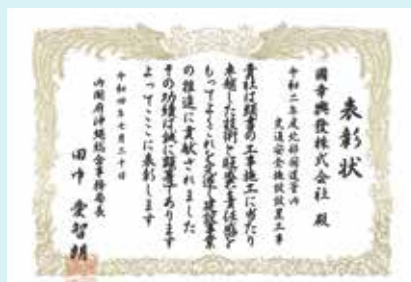 表彰状
國幸興發株式会社 殿
令和二年度北部国道管内
交通安全施設設置工事
貴社は頭書の工事施工に当たり
卓越した技術と旺盛な責任感を
もってよくこれを完遂し建設事業
の推進に貢献されました
その功績は誠に顕著であります
よってここに表彰します
令和四年七月二十日
内閣府沖縄総合事務局長
田中愛智朗